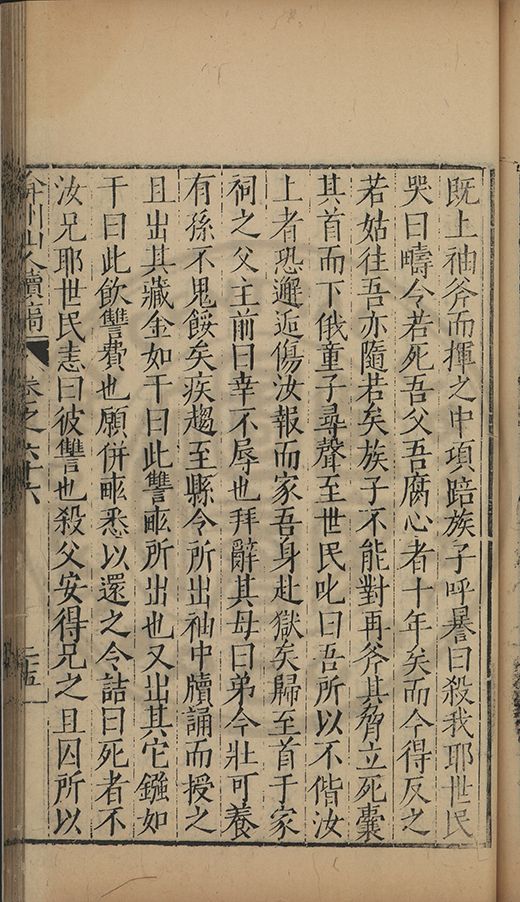 既上袖斧而揮之中項踣族子呼謈曰殺我耶世民
哭曰疇令若死吾父吾腐心者十年矣而今得反之
若姑往吾亦隨若矣族子不能對再斧其脅立死囊
其首而下俄童子尋聲至世民叱曰吾所以不偕汝
上者恐邂逅傷汝報而家吾身赴獄矣歸至首于家
祠之父主前曰幸不辱也拜辭其母曰弟今壯可養
有孫不鬼餒矣疾趨至縣令所出袖中牘誦而授之
且出其藏金如干曰此讐畝所出也又出其它鏹如
干曰此飲讐費也願併畝悉以還之令詰曰死者不
汝兄耶世民恚曰彼讐也殺父安得兄之且囚所以
弇州山人續稿
卷之六十六
二十五